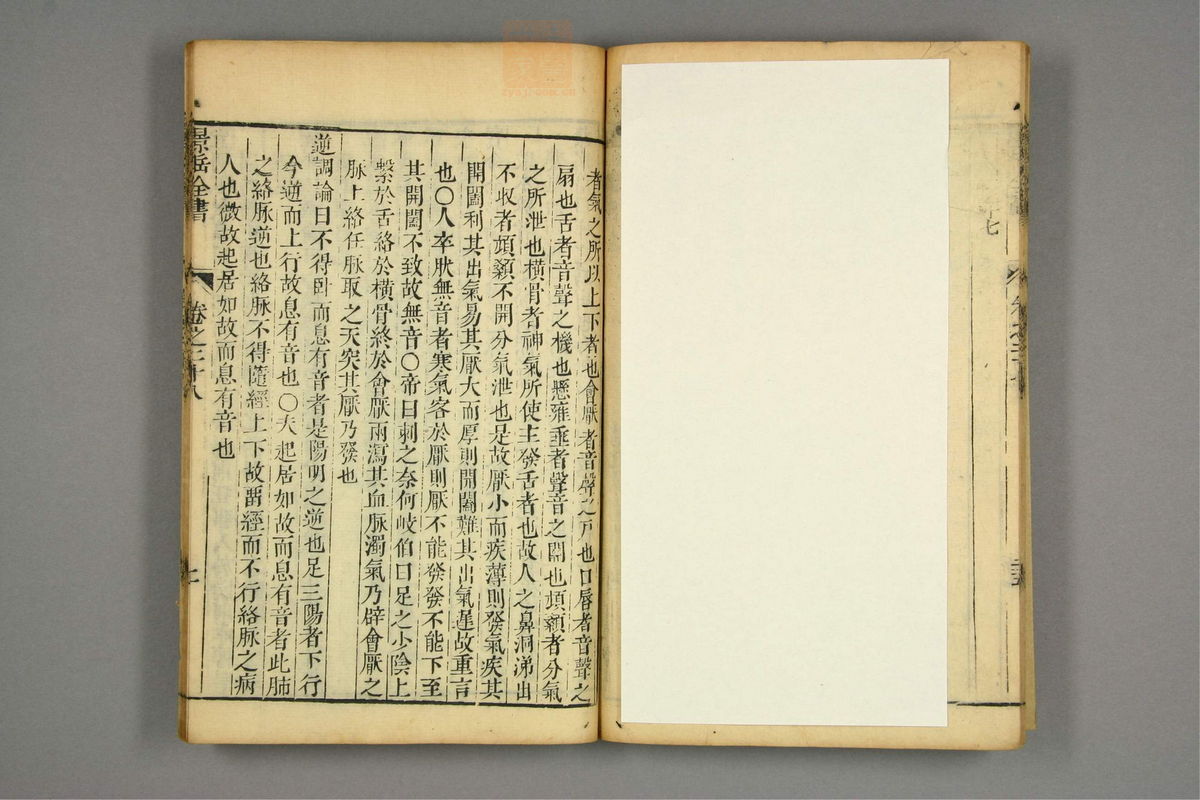 七
者氣之所以上下者也會厭者音聲之戸也口唇者音聲之
扇也舌者音聲之機也懸雍埀者聲音之關也頏顙者分氣
之所泄也橫骨者神氣所使主發舌者也故人之鼻洞涕出
不收者頏顙不開分氣泄也是故厭小而疾薄則發氣疾其
開闔利其出氣易其厭大而厚則開闔難其出氣遲故重言
也○人卒然無音者寒氣客於厭則厭不能發發不能下至
其開闔不致故無音○帝曰刺之奈何岐伯曰足之少陰上
繫於舌絡於橫骨終於會厭兩瀉其血脉濁氣乃辟會厭之
脉上絡任脉取之天突其厭乃發也
逆調論曰不得卧而息有音者是陽明之逆也足三陽者下行
今逆而上行故息有音也○夫起居如故而息有音者此肺
之絡脉逆也絡脉不得隨經上下故畱經而不行絡脉之病
人也微故起居如故而息有音也
景岳全書 卷之二十八 七